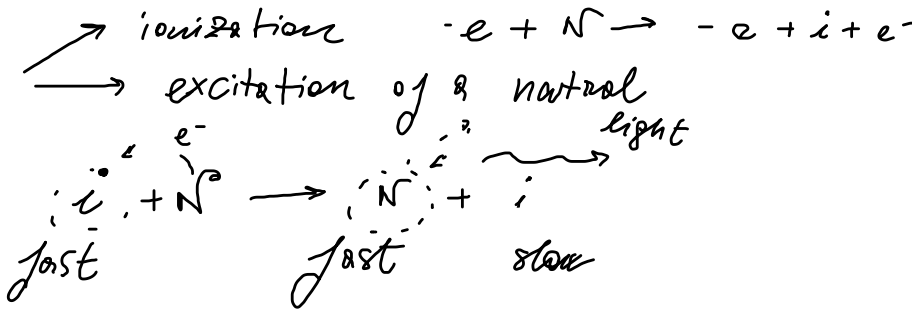 ionization -e + N → - e + i + e-
excitation of a natral
light
e-
i + N → N + i
fast fast slow